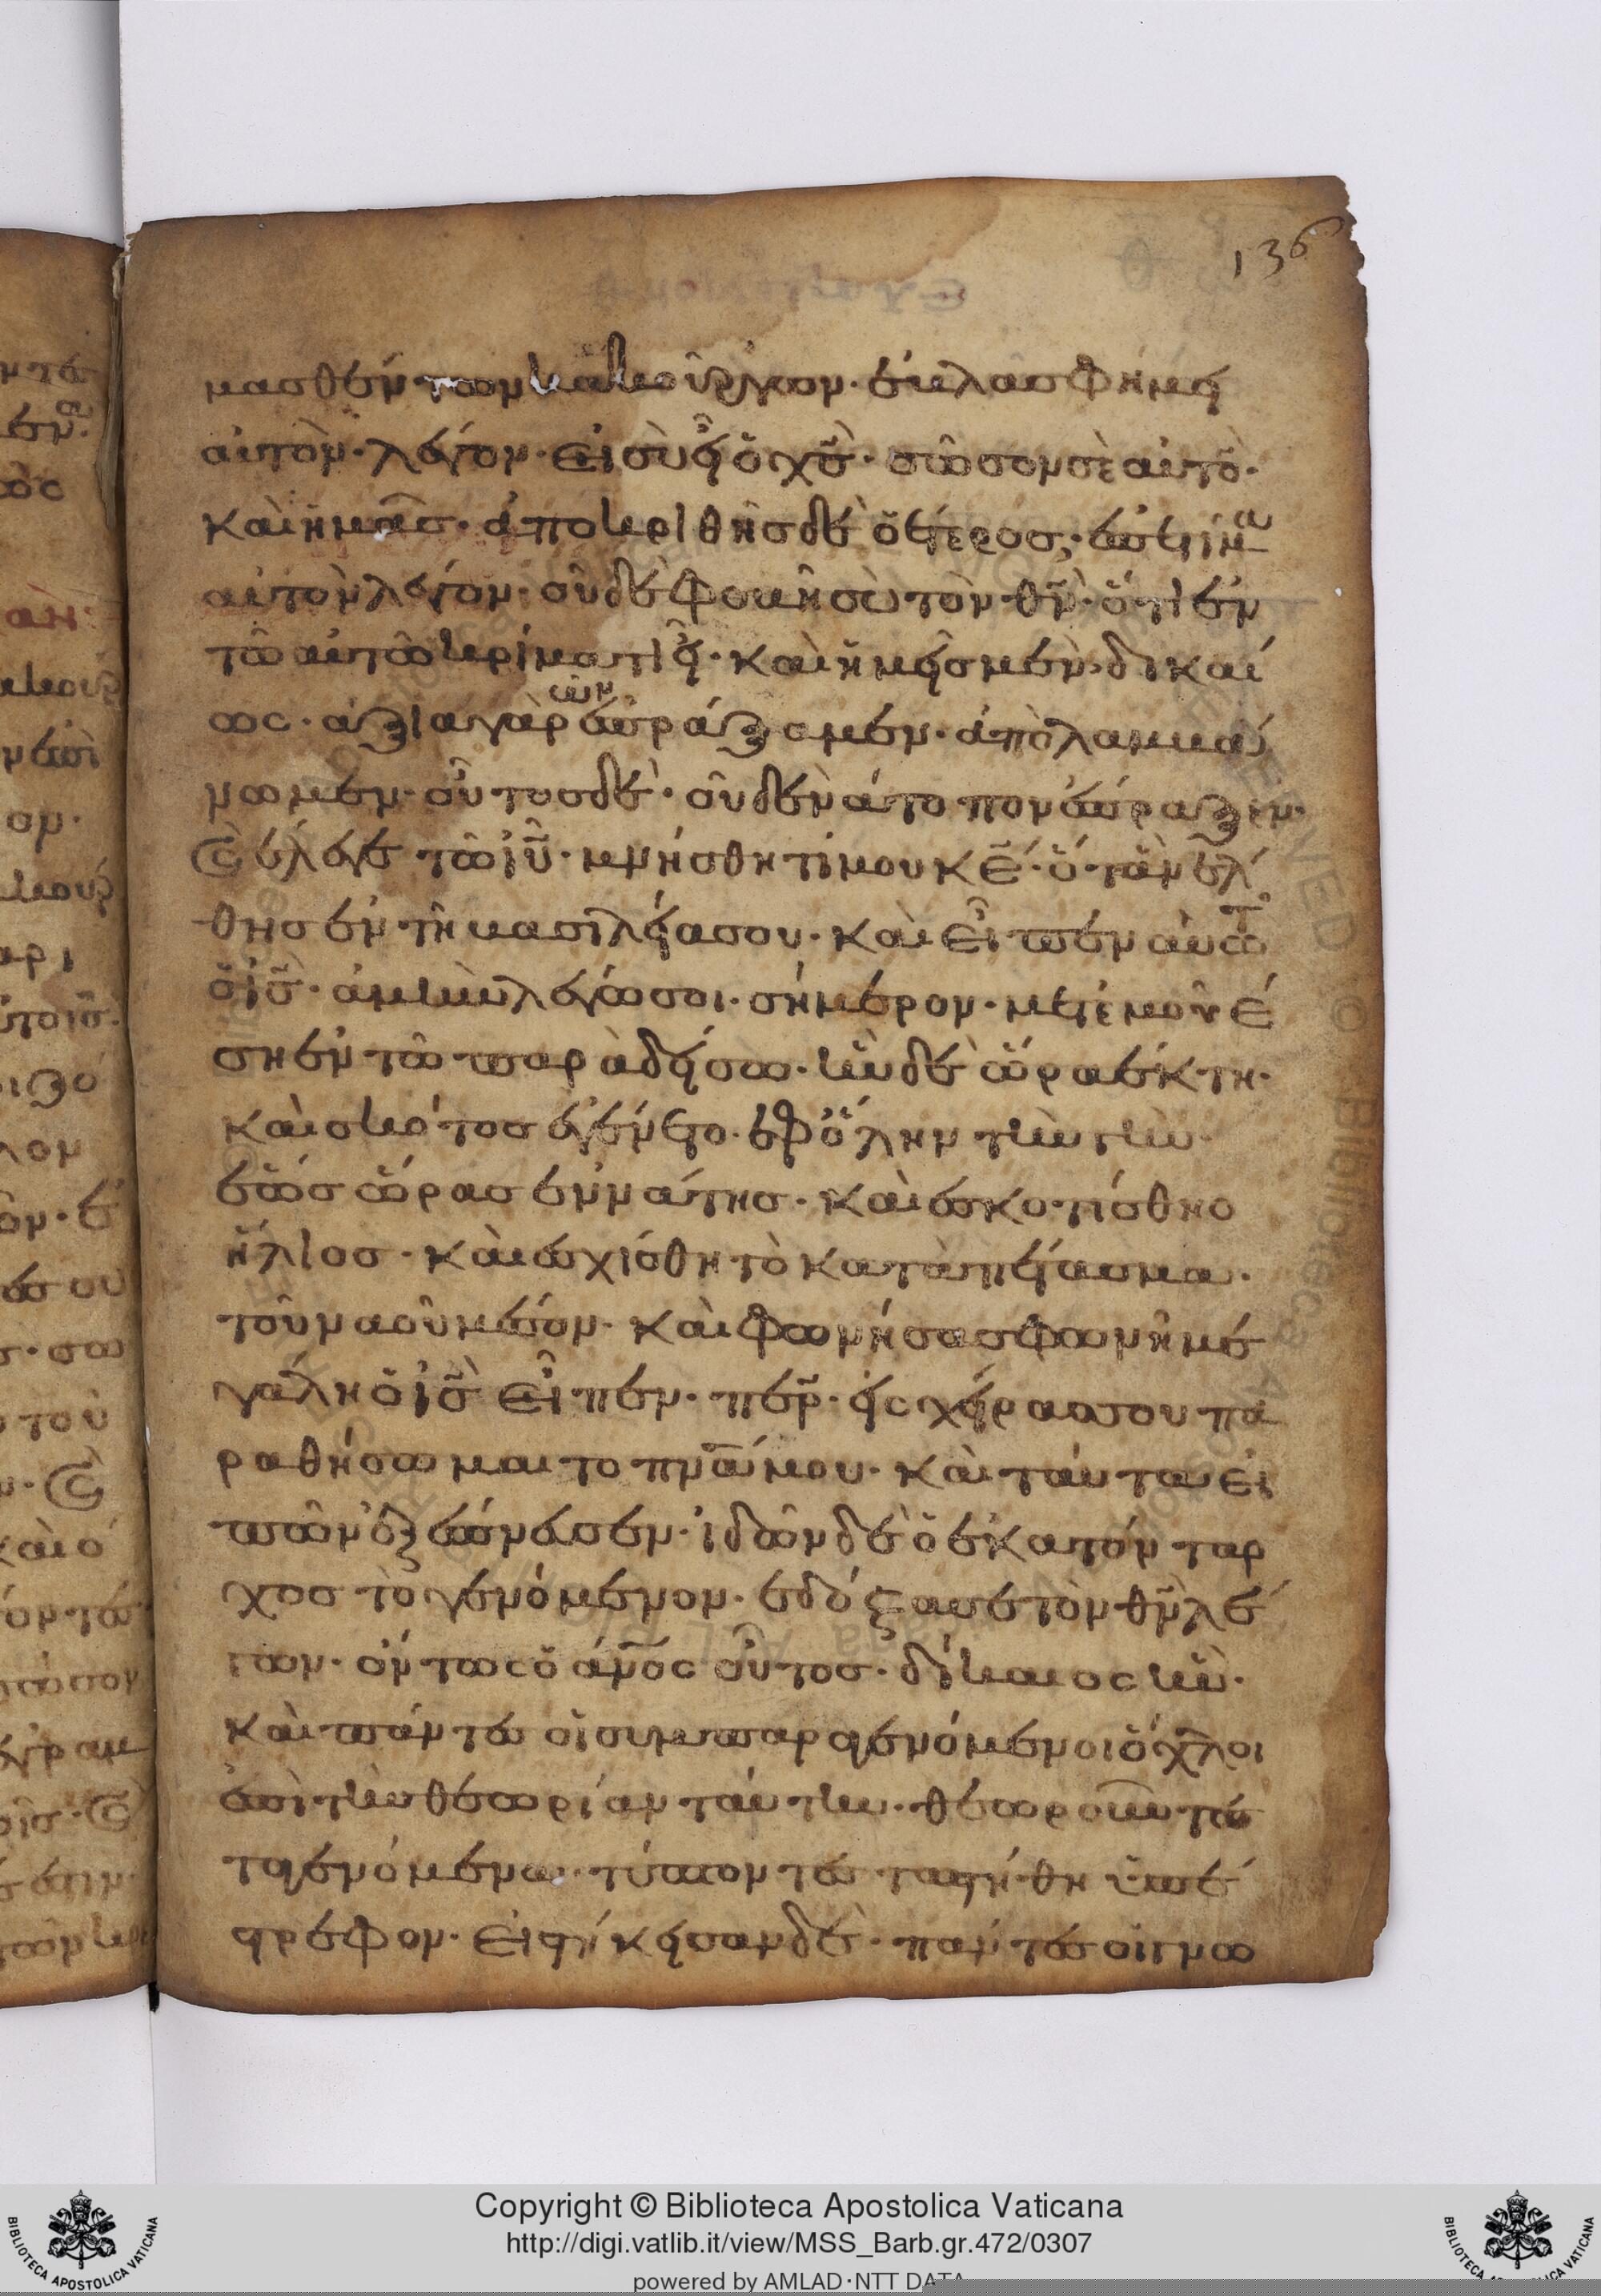 136
μασθέν των κακούργων· ἐβλασφήμει
αὐτὸν· λέγον· εἰ σὺ εἶ ὁ χς· σῶσον σὲ αὐτό·
καὶ ἡμᾶσ· ἀποκριθῆσ δὲ ὁ ἕτεροσ· ἐπετίμα
αὐτὸν λέγον· οὐδὲ φοβῆ σὺ τὸν θν· ὅτι ἐν
τῶ αὐτῶ κρίματι εἶ· καὶ ἡμεῖσ μὲν· δικαί
ως· ἀξια γὰρ ὧν ἐπράξαμεν· ἀπὸλαμβά
νωμεν· οὗτοσ δὲ· οὐδὲν άτοπον έπραξεν·
καὶ έλεγε τῶ ιυ· μνήσθητί μου κε· ὅταν ἔλ
θησ ἐν τῆ βασιλεία σου· καὶ εἶπεν αὐτῶ
ὁ ις· ἀμὴν λέγω σοι· σήμερον· μετ ἐμοῦ έ
ση ἐν τῶ παραδείσω· ἦν δὲ ὥρα ἕκτη·
καὶ σκότοσ ἐγένετο· ἐφ ὅλην τὴν γὴν·
ἕωσ ὥρασ ἐννάτησ· καὶ ἐσκοτίσθη ο
ἥλιοσ· καὶ ἐσχίσθη τὸ καταπέτασμα·
τοῦ ναοῦ μέσον· καὶ φωνήσασ φωνῆ με
γάλη ὁ ις εἶπεν· περ· εἰς χείρασ σου πα
ραθήσωμαι το πνά μου· καὶ ταύτα εἰ
πῶν ἐξέπνευσεν· ἰδῶν δὲ ὁ ἑκατόνταρ
χοσ τὸ γενόμενον· εδόξασε τὸν θν λέ
γων· όντως ὁ άνος οὗτοσ· δίκαιος ἦν·
καὶ πάντεσ οἱ συμπαραγενόμενοι ὄχλοι
ἐπὶ τὴν θεωρίαν ταύτην· θεωροῦντεσ
τα γενόμενα· τύπτοντεσ τα στήθη ὑπέ
στρεφον· Εἱστήκεισαν δὲ· πάντεσ οἱ γνω
Copyright © Biblioteca Apostolica Vaticana
http://digi.vatlib.it/view/MSS_Barb.gr.472/0307
powered by AMLAD·NTT DATA
BIBLIOTECA APOSTOLICA VATICANA
BIBLIOTECA APOSTOLICA VATICANA